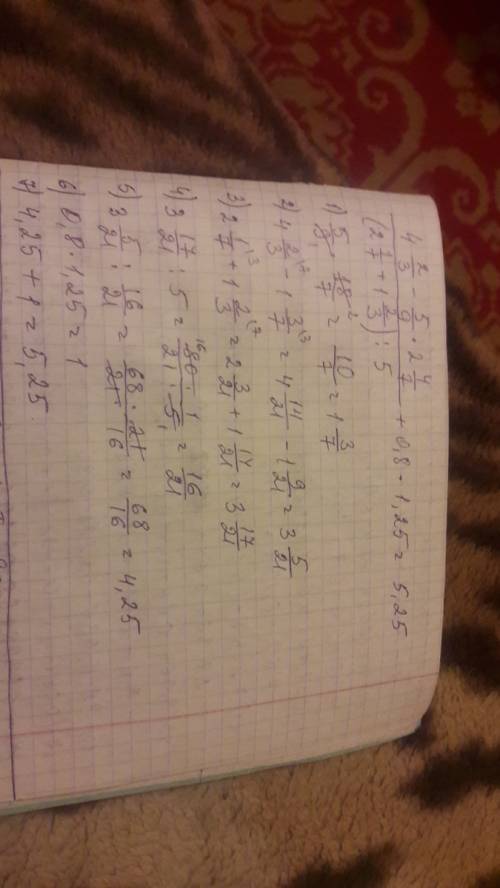 4 2/3 - 5/9 · 2 4/7
/ (2 1/7 + 1 2/3) : 5 + 0,8 · 1,25 = 5,25
1) 5/9 · 18/7 = 10/7 = 1 3/7
2) 4 2/3 - 1 3/7 = 4 14/21 - 1 9/21 = 3 5/21
3) 2 1/7 + 1 2/3 = 2 3/21 + 1 14/21 = 3 17/21
4) 3 17/21 : 5 = 80 · 1/21 · 5 = 16/21
5) 3 5/21 : 16/21 = 68 · 21/21 · 16 = 68/16 = 4,25
6) 0,8 · 1,25 = 1
7) 4,25 + 1 = 5,25